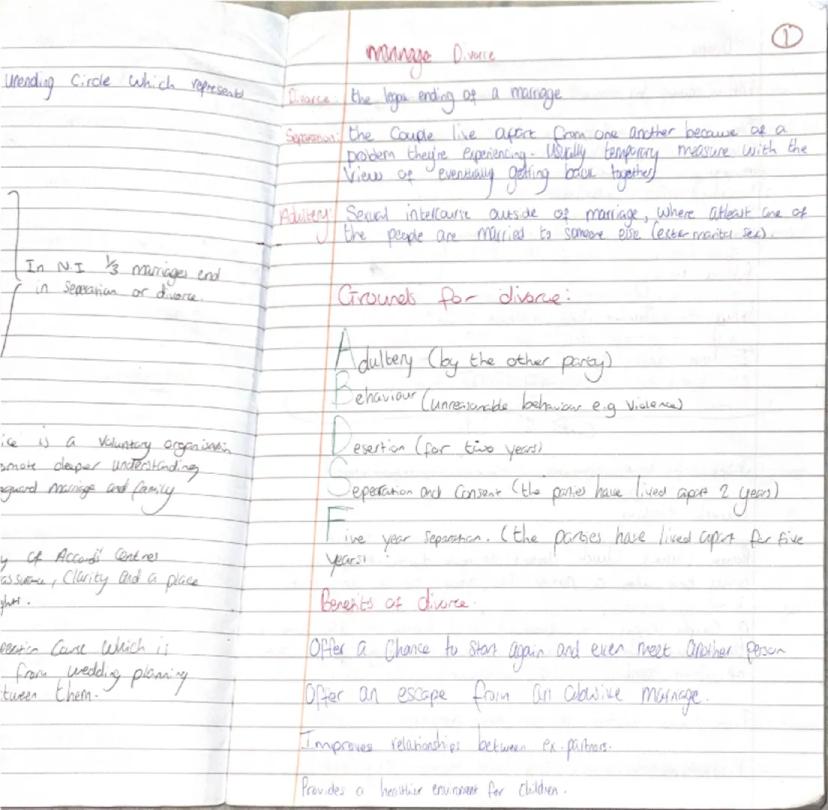 unending Circle which represents
In N.I 1/3 marriages end
in Seperation or divorce.
ice is a voluntary organisain
omote deeper understanding
guard marriage and family
y of Accord' Centres
assurance, Clarity and a place
from wedding planning
tween them.
①
Divorce
Divorce: the legal ending of a marriage
Separation: the Couple live apart from one another because of a
problem they're experiencing. Usually temporary measure with the
View of eventually getting back together
Adultery: Sexual intercourse outside of marriage, where atleast one of
the people are married to someone else (extermarital sex).
Grounds for divorce:
Adultery (by the other party)
Behaviour (unreasonable behaviour e.g Violence)
Desertion (for two years)
Seperation and Consent (the parties have lived apart 2 years)
Five year Separation. (the parties have lived apart for five
years)
Benefits of divorce.
Offer a Chance to start again and even meet another person
Offer an escape from an abusive marriage.
Improves relationships between ex. partners.
Provides a healthier enviroment for Children.